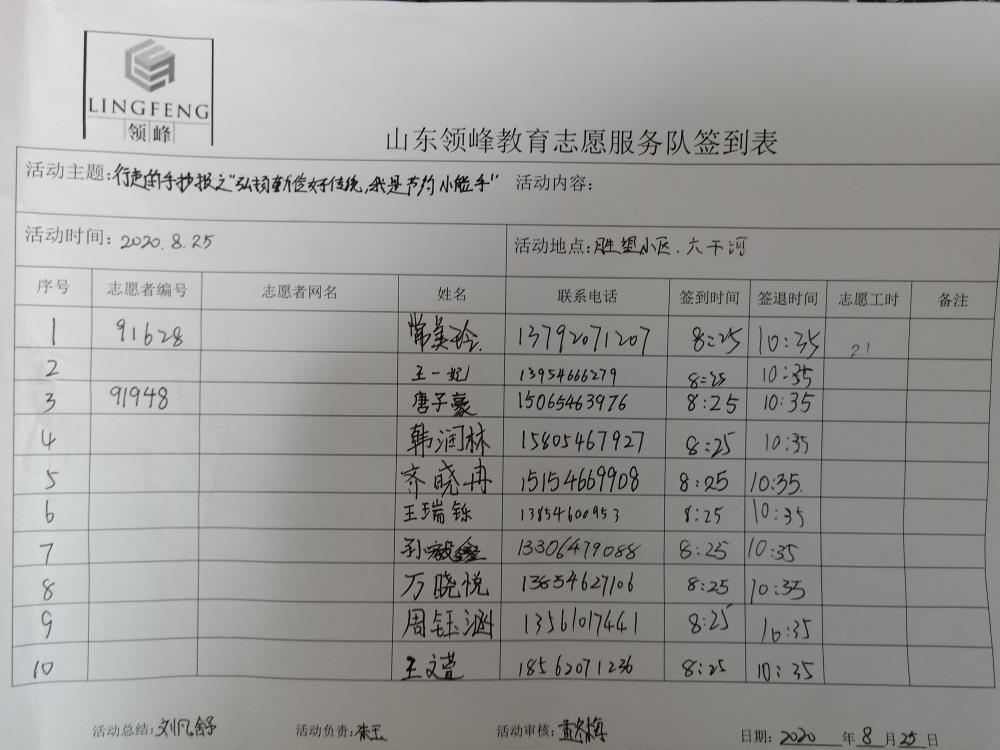 LINGFENG
领峰
山东领峰教育志愿服务队签到表
活动主题:行走的手抄报之"弘扬勤俭好传统,我是节约小能手" 活动内容:
活动时间: 2020.8.25 活动地点:胜望小区.六干河
序号 志愿者编号 志愿者网名 姓名 联系电话 签到时间 签退时间 志愿工时 备注
1 91628 常美玲. 13792071207 8:25 10:35 2.1
2 王一妃 13954666279 8:25 10:35
3 91948 唐子豪 15065463976 8:25 10:35
4 韩润林 15805467927 8:25 10:35
5 齐晓冉 15154669908 8:25 10:35.
6 王瑞铄 13854600953 8:25 10:35
7 孙毅鑫 13306479088 8:25 10:35
8 万晓悦 13854627106 8:25 10:35
9 周钰涵 13561017441 8:25 10:35
10 王文萱 18562071236 8:25 10:35
活动总结:刘凡舒 活动负责:朱玉 活动审核: 日期: 2020 年 8 月 25 日